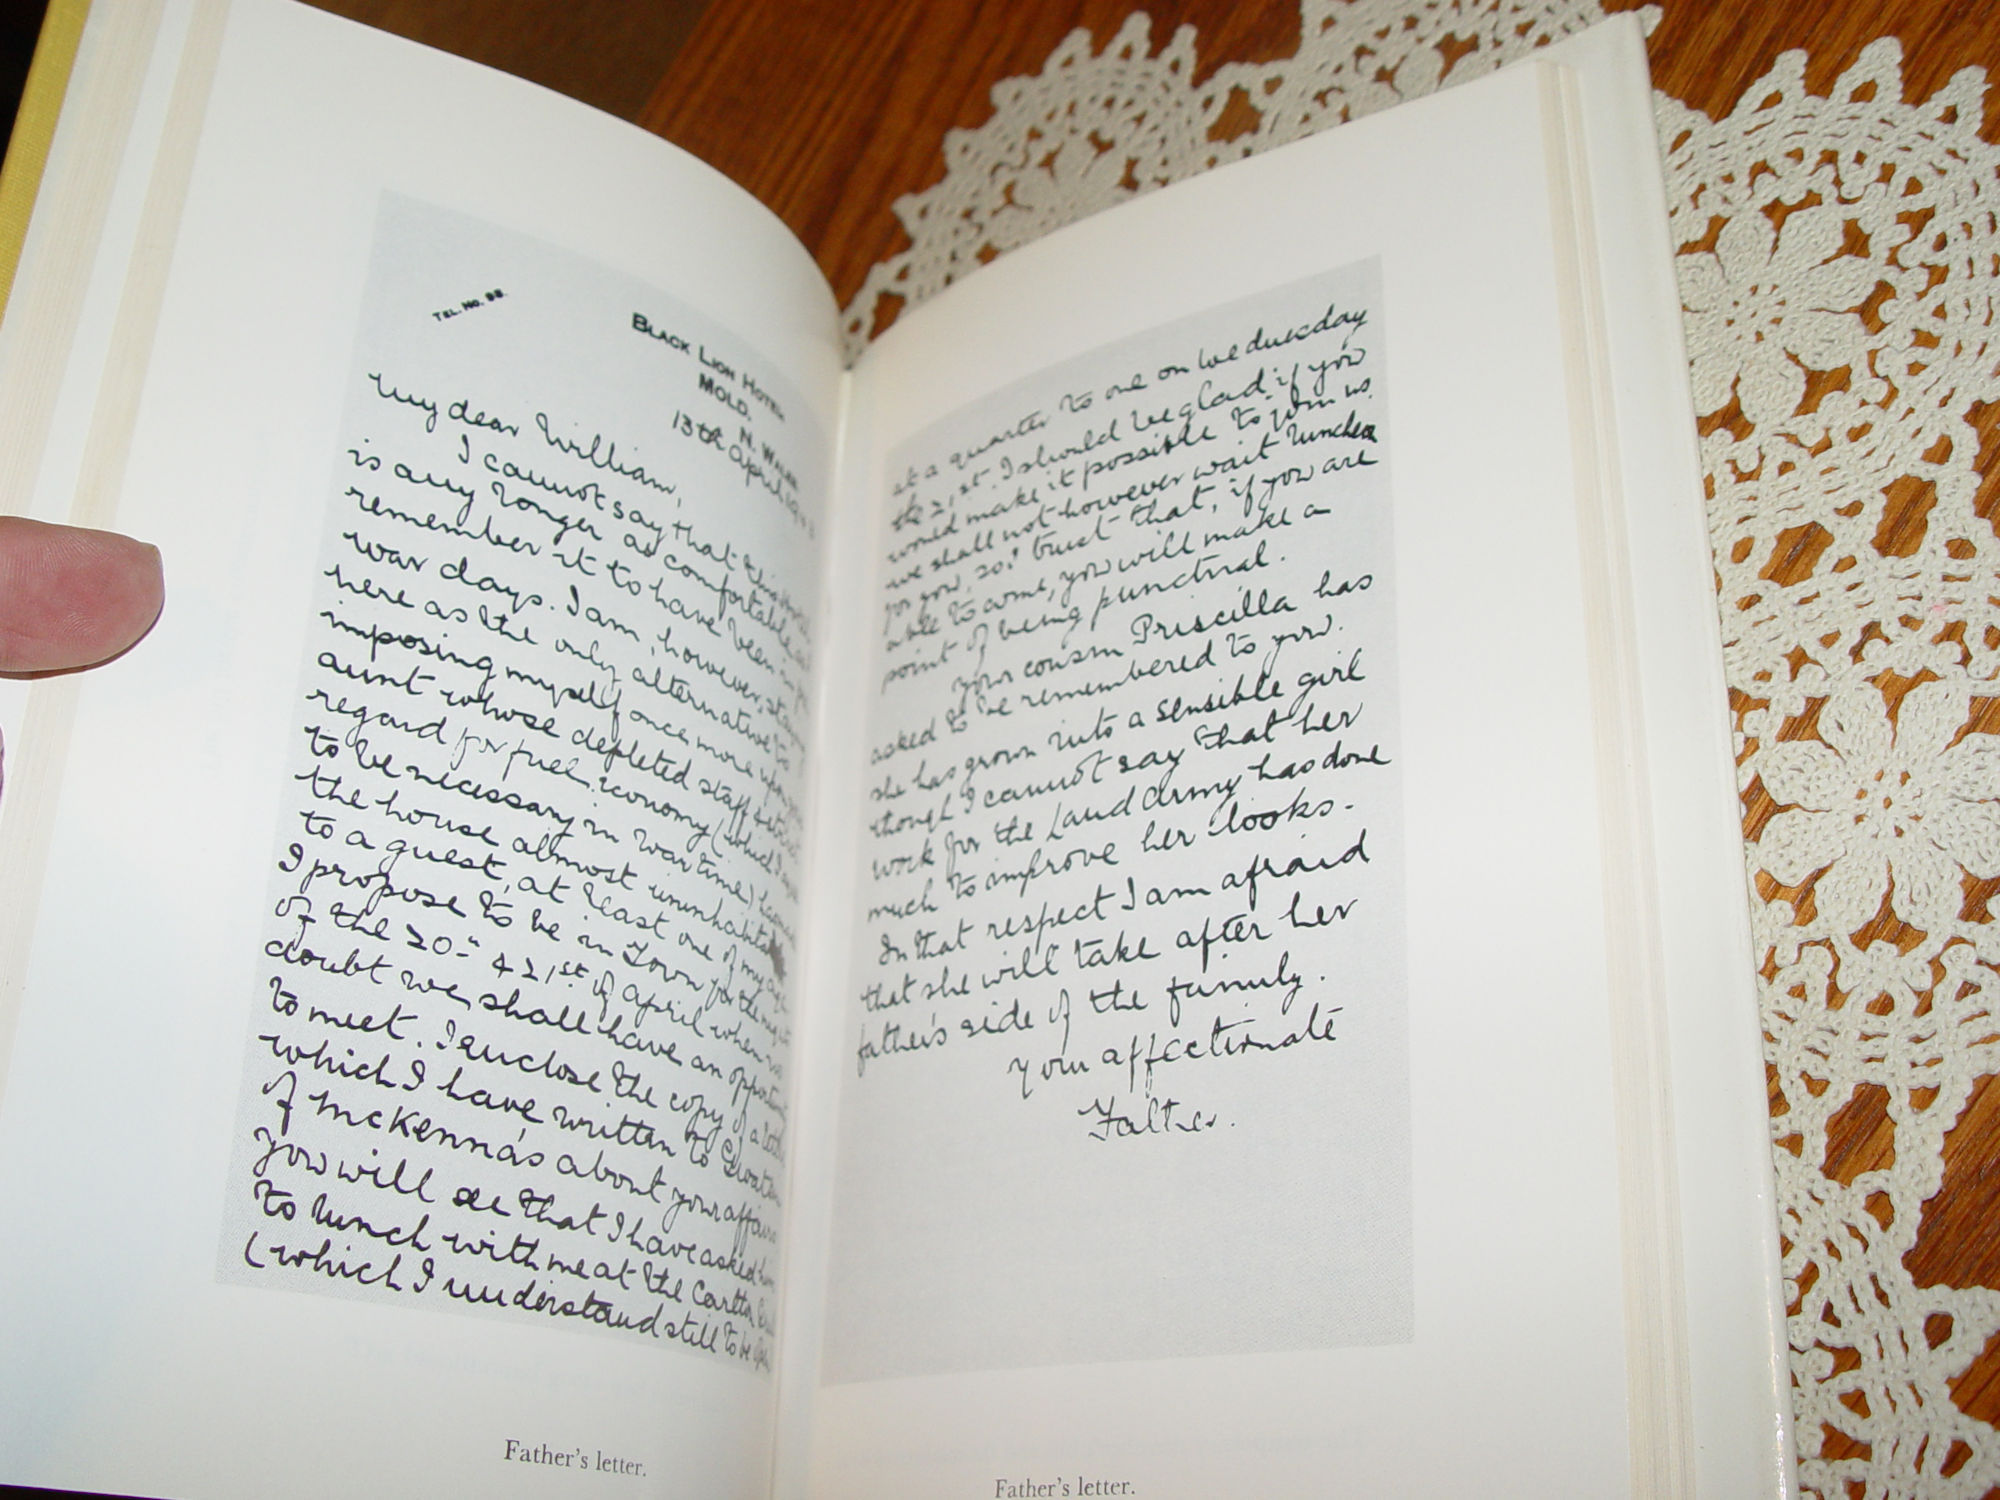 TEL. No. 98.
BLACK LION HOTEL
MOLD.
N. WALES
13th April
My dear William,
I cannot say that this
is any longer as comfortable as
remember it to have been in
war days. I am, however, staying
here as the only alternative to
imposing myself once more upon your
aunt whose depleted staff &
regard for fuel economy (which I
to be necessary in war time)
the house almost uninhabitable
to a guest, at least one of my age
I propose to be in Town for the nights
of the 20th & 21st of April when no
doubt we shall have an opportunity
to meet. I enclose the copy of a letter
which I have written to Gwatkin
of McKenna's about your affairs
you will see that I have asked him
to lunch with me at the Carlton
(which I understand still to be
Father's letter.
at a quarter to one on Wednesday
the 21st. I should be glad if you
would make it possible to join us.
we shall not however wait luncheon
for you, so I trust that, if you are
able to come, you will make a
point of being punctual.
Your cousin Priscilla has
asked to be remembered to you.
she has grown into a sensible girl
though I cannot say that her
work for the Land Army has done
much to improve her looks.
In that respect I am afraid
that she will take after her
father's side of the family.
Your affectionate
Father.
Father's letter.